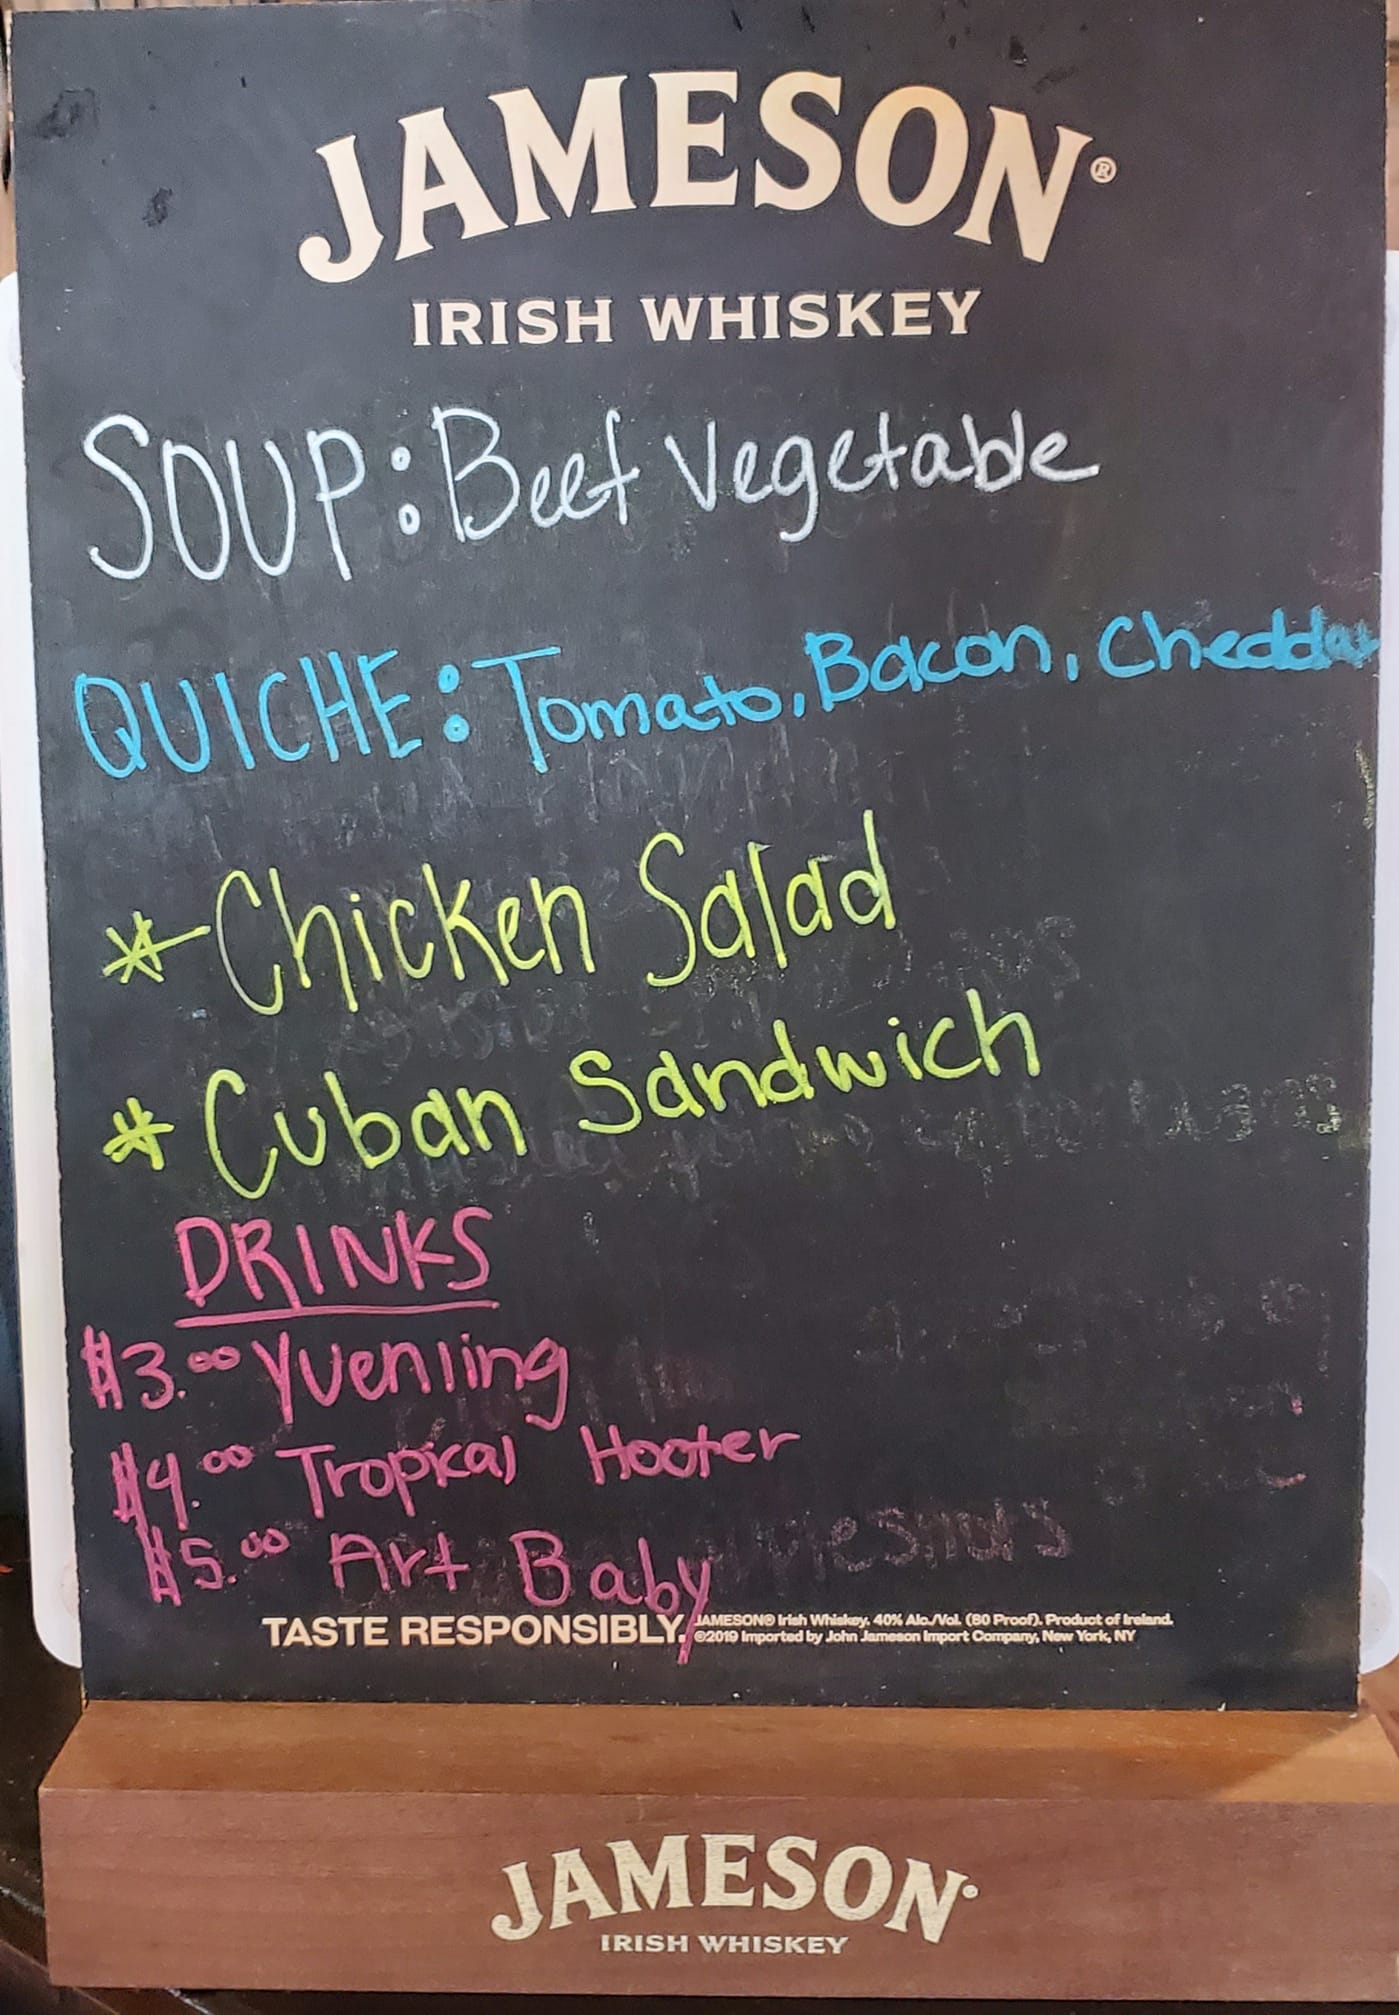 JAMESON®
IRISH WHISKEY
SOUP: Beef Vegetable
QUICHE: Tomato, Bacon, Cheddar
* Chicken Salad
* Cuban Sandwich
DRINKS
$3.00 Yuenling
$4.00 Tropical Hooter
$5.00 Art Baby
TASTE RESPONSIBLY. JAMESON® Irish Whiskey. 40% Alc./Vol. (80 Proof). Product of Ireland.
©2019 Imported by John Jameson Import Company, New York, NY
JAMESON®
IRISH WHISKEY